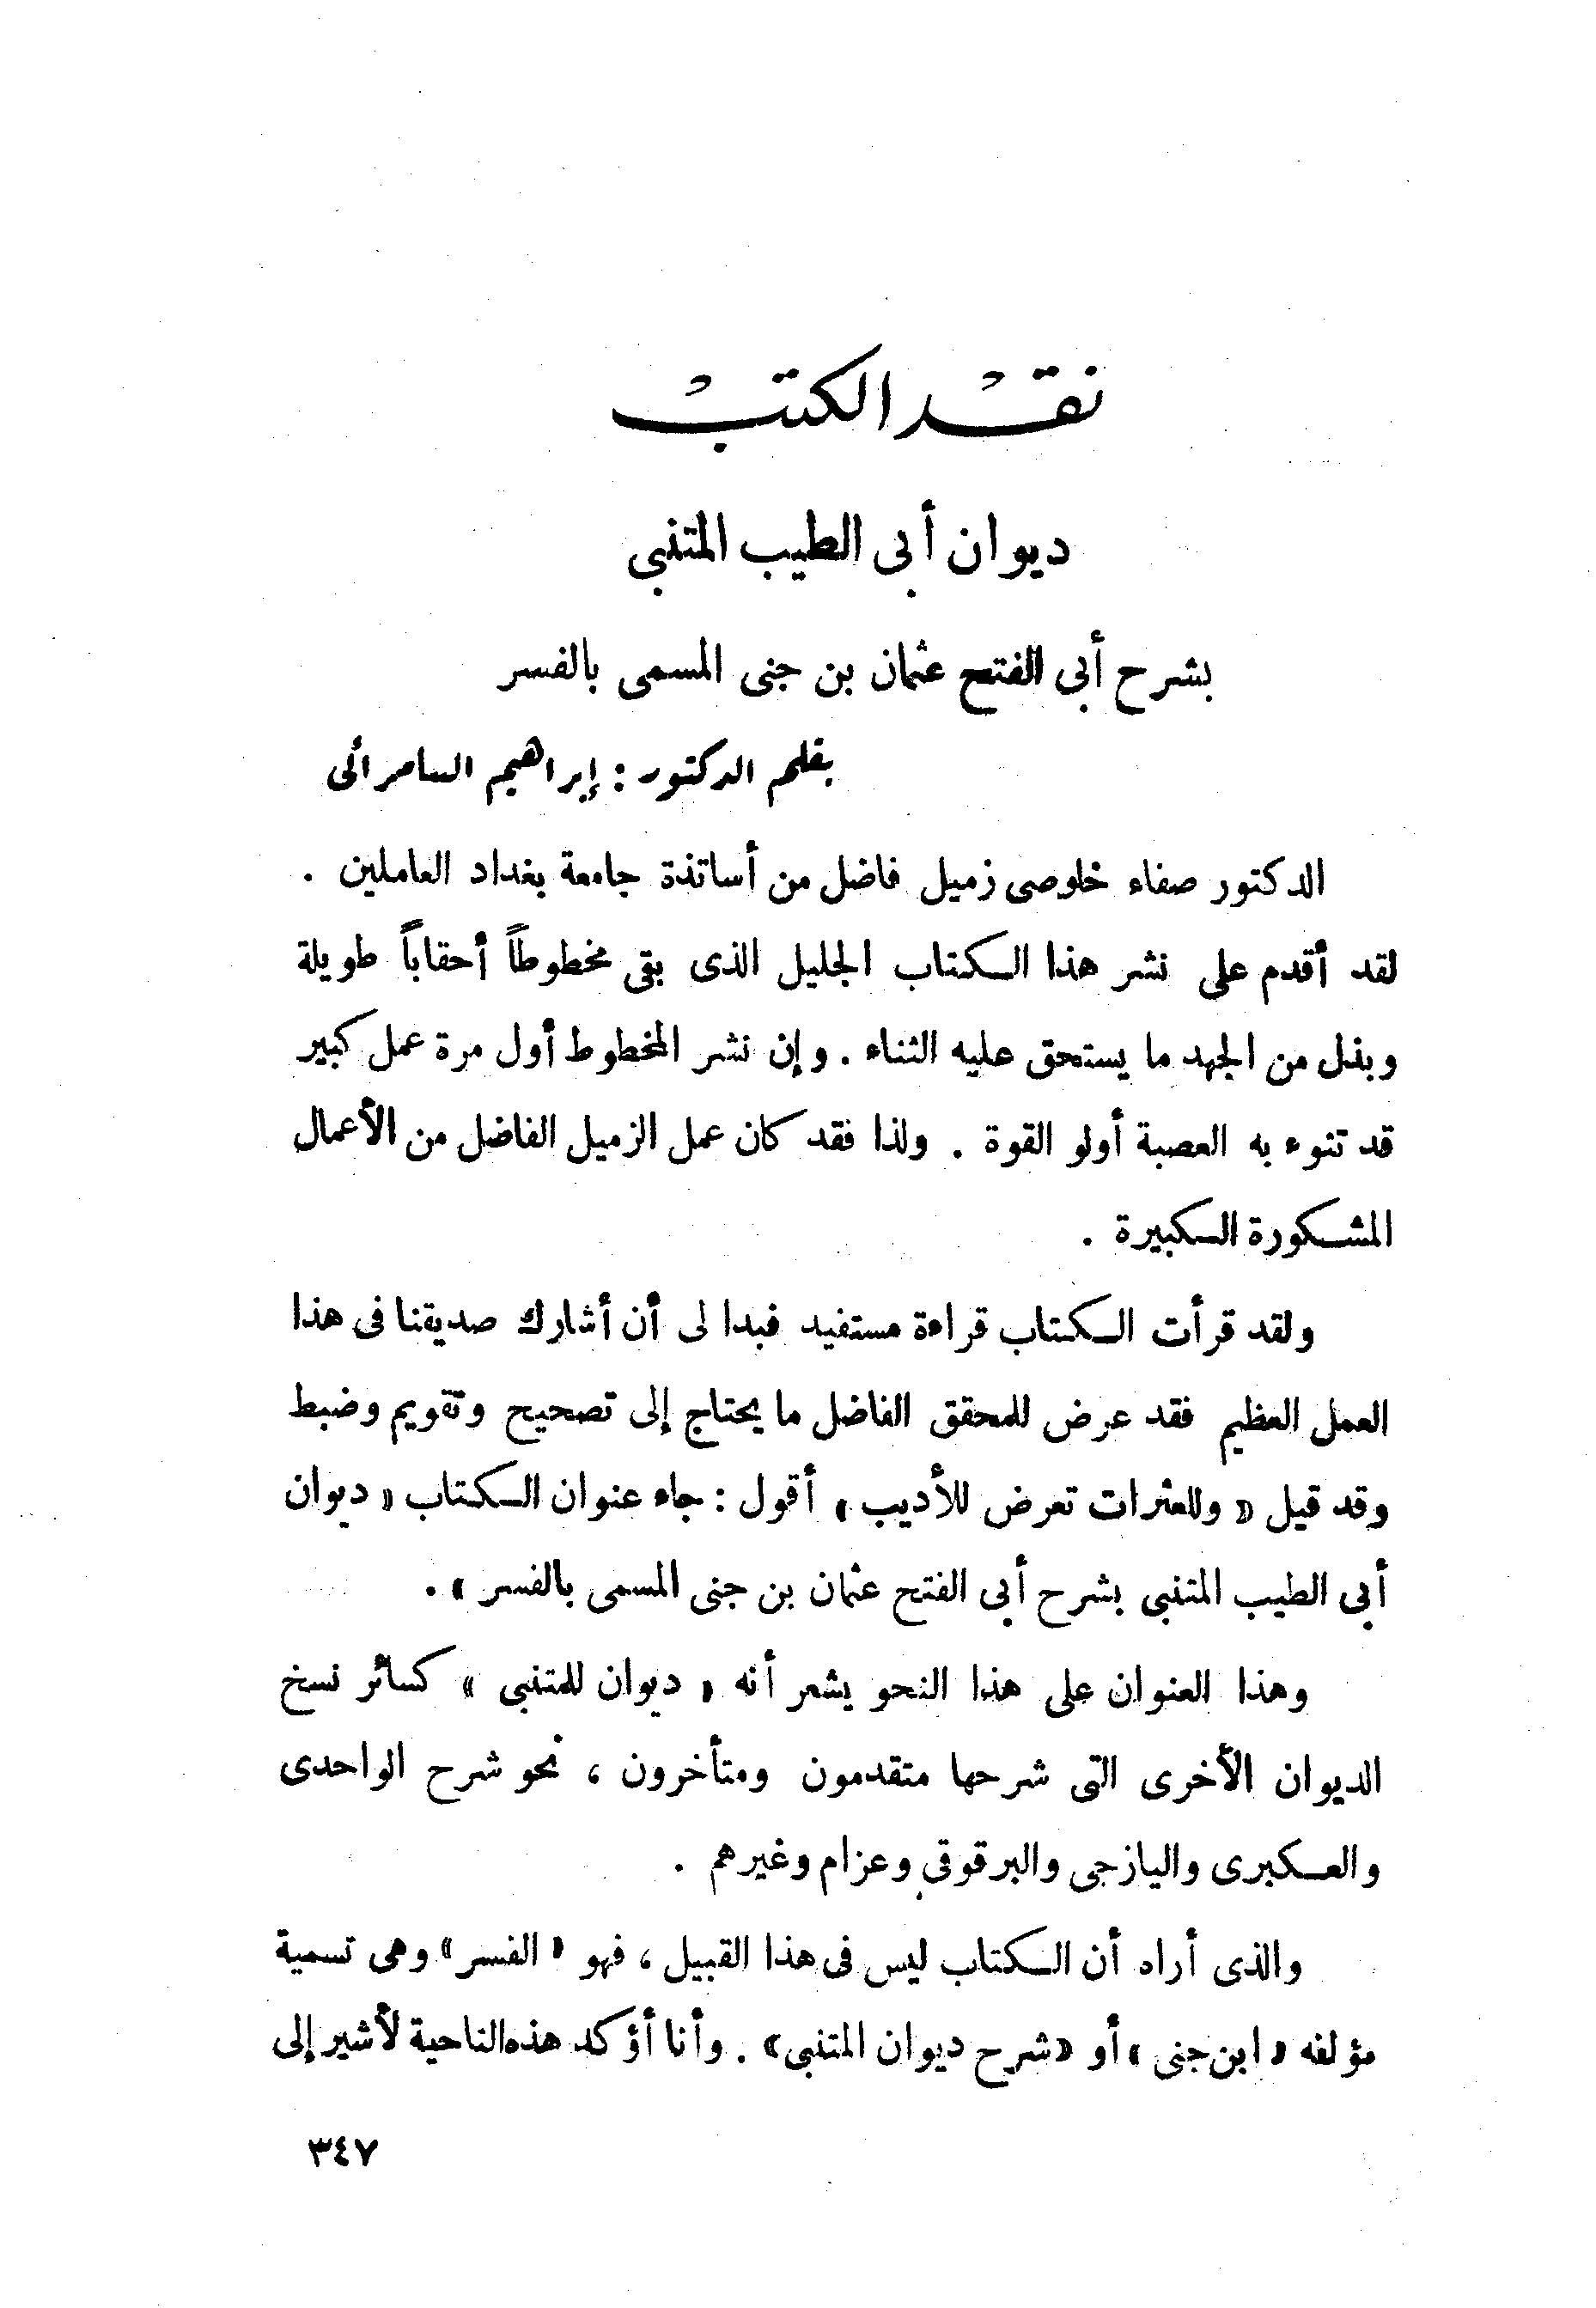 نقد الكتب
ديوان أبى الطيب المتنبى
بشرح أبى الفتح عثمان بن جنى المسمى بالفسر
بقلم الدكتور : إبراهيم السامرائى
الدكتور صفاء خلوصى زميل فاضل من أساتذة جامعة بغداد العاملين .
لقد أقدم على نشر هذا الكتاب الجليل الذى بقى مخطوطاً أحقاباً طويلة
وبذل من الجهد ما يستحق عليه الثناء . وإن نشر المخطوط أول مرة عمل كبير
قد تنوء به العصبة أولو القوة . ولذا فقد كان عمل الزميل الفاضل من الأعمال
المشكورة الكبيرة .
ولقد قرأت الكتاب قراءة مستفيد فبدا لى أن أشارك صديقنا فى هذا
العمل العظيم فقد عرض للمحقق الفاضل ما يحتاج إلى تصحيح وتقويم وضبط
وقد قيل « وللعثرات تعرض للأديب » أقول : جاء عنوان الكتاب « ديوان
أبى الطيب المتنبى بشرح أبى الفتح عثمان بن جنى المسمى بالفسر » .
وهذا العنوان على هذا النحو يشعر أنه « ديوان للمتنبى » كسائر نسخ
الديوان الأخرى التى شرحها متقدمون ومتأخرون ، نحو شرح الواحدى
والعكبرى واليازجى والبرقوقى وعزام وغيرهم .
والذى أراه أن الكتاب ليس فى هذا القبيل ، فهو « الفسر » وهى تسمية
مؤلفه « ابن جنى » أو «شرح ديوان المتنبى» . وأنا أؤكد هذه الناحية لأشير إلى
٣٤٧